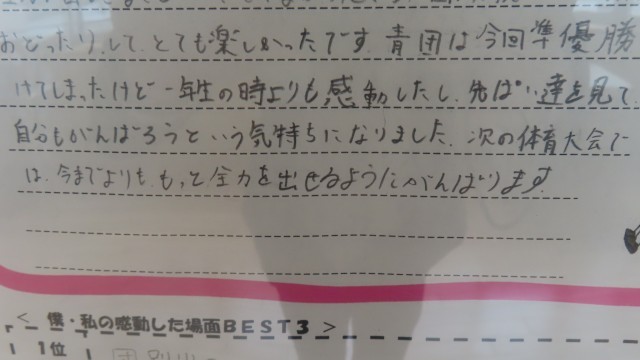 おどったりして、とても楽しかったです。青団は今回準優勝
けてしまったけど一年生の時よりも感動したし、先ぱい達を見て、
自分もがんばろうという気持ちになりました。次の体育大会で
は、今までよりも、もっと全力を出せるようにがんばります。
＜ 僕・私の感動した場面BEST3 ＞
1位